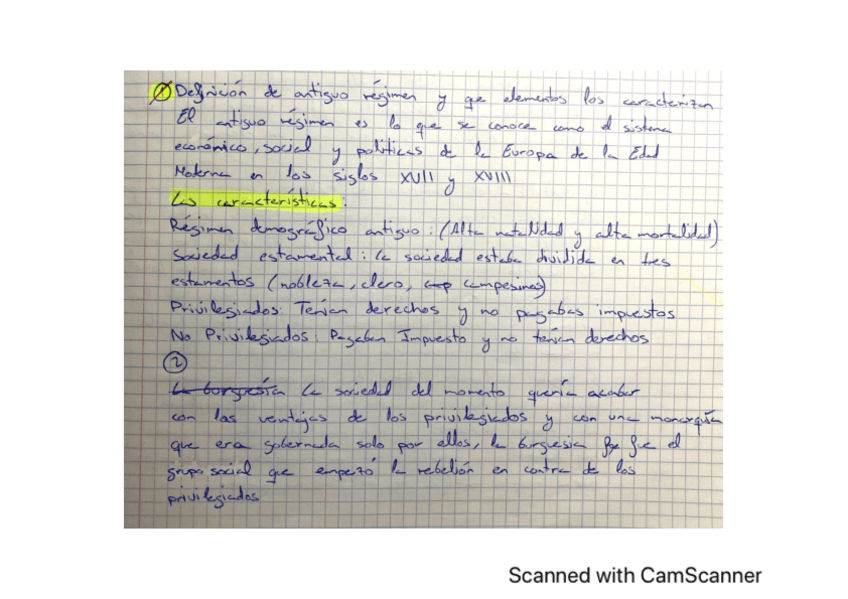 ① Definición de antiguo régimen y que elementos los caracterizan
El antiguo régimen es lo que se conoce como el sistema
económico, social y politicas de la Europa de la Edad
Moderna en los siglos XVII y XVIII
Las características:
Régimen demográfico antiguo: (Alta natalidad y alta mortalidad)
Sociedad estamental: la sociedad estaba dividida en tres
estamentos (nobleza, clero, campesinos)
Privilegiados: Tenian derechos y no pagabas impuestos
No Privilegiados: Pagaban Impuesto y no tenían derechos
②
La burguesía La sociedad del momento quería acabar
con las ventajas de los privilegiados y con una monarquía
que era gobernada solo por ellos, la burguesia fue el
grupo social que empezó la rebelión en contra de los
privilegiados
Scanned with CamScanner